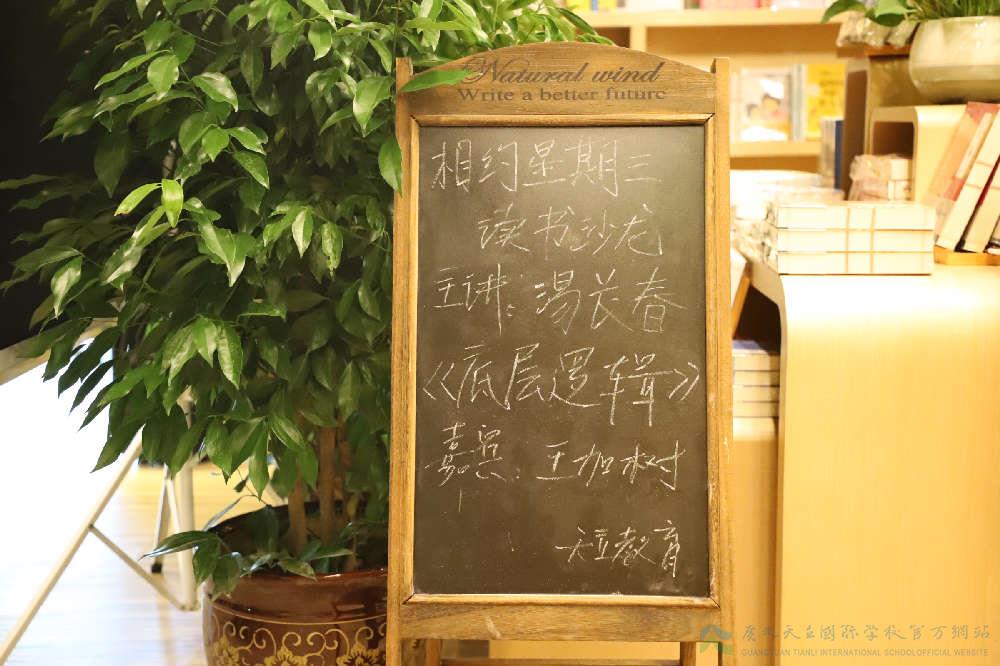 Natural wind
Write a better future
相约星期三
读书沙龙
主讲:汤长春
《底层逻辑》
嘉宾:王加树
天立教育
广元天立國际学校官方網站
GUANGYUAN TIANLI INTERNATIONAL SCHOOLOFFICIAL WEBSITE